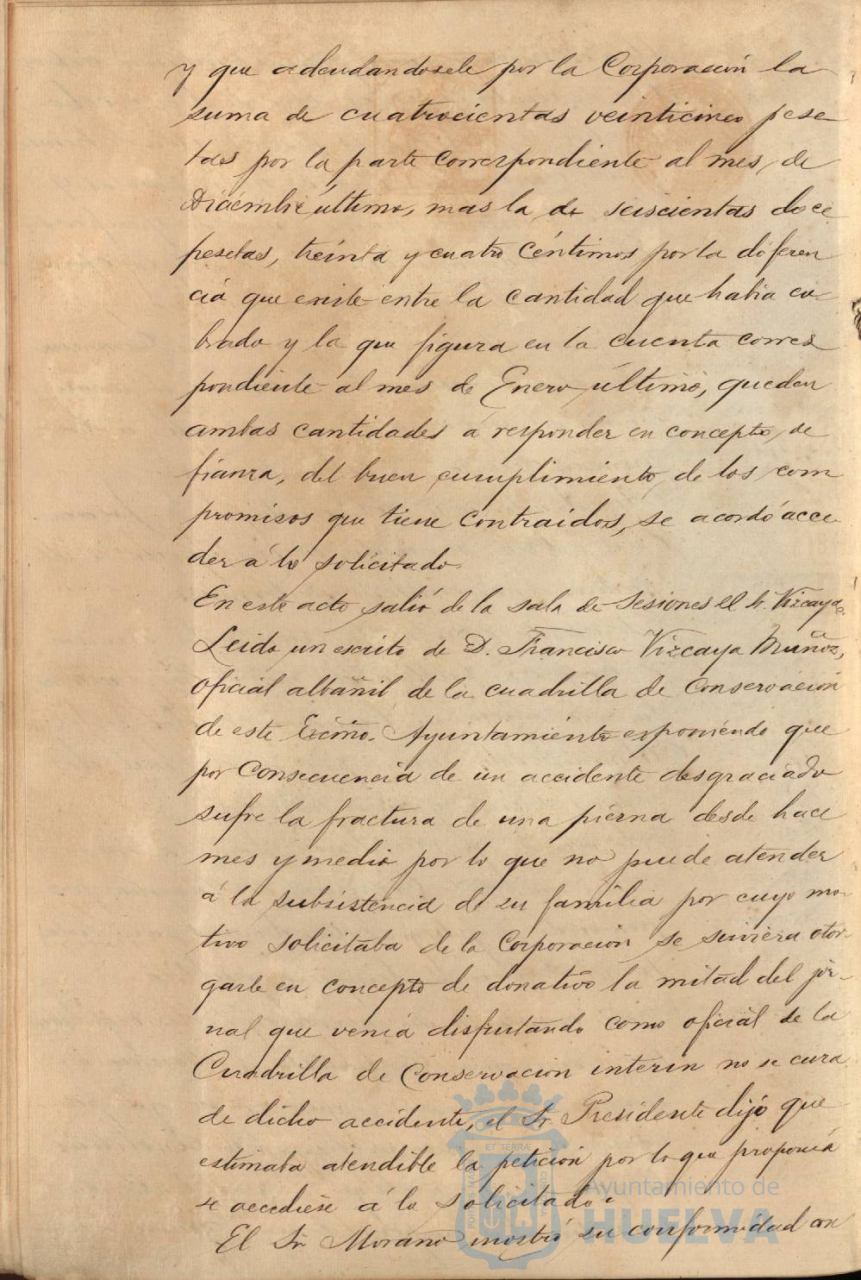 y que adeudandosele por la Corporación la
suma de cuatrocientas veinticinco pese-
tas por la parte correspondiente al mes de
Diciembre último, mas la de seiscientas doce
pesetas, treinta y cuatro céntimos por la diferen
cia que existe entre la cantidad que habia co-
brado y la que figura en la cuenta corres
pondiente al mes de Enero último, quedan
ambas cantidades á responder en concepto de
fianza, del buen cumplimiento de los com
promisos que tiene contraidos, se acordó acce
der á lo solicitado.
En este acto salió de la sala de Sesiones el Sr. Vizcaya.
Leido un escrito de D. Francisco Vizcaya Muñoz,
oficial albañil de la cuadrilla de Conservación
de este Excmo. Ayuntamiento exponiendo que
por consecuencia de un accidente desgraciado
sufre la fractura de una pierna desde hace
mes y medio por lo que no puede atender
á la subsistencia de su familia por cuyo mo-
tivo solicitaba de la Corporación se sirviera otor-
garle en concepto de donativo la mitad del jor-
nal que venia disfrutando como oficial de la
Cuadrilla de Conservacion interin no se cura
de dicho accidente, el Sr. Presidente dijó que
estimaba atendible la petición por lo que proponia
se accediese á lo solicitado.
El Sr. Morano mostró su conformidad con
Ayuntamiento de
HUELVA